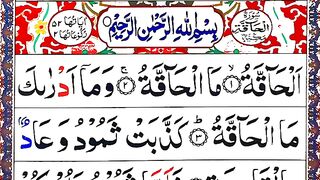 سُورَةُ الْحَاقَّةِ
بِسْمِ اللهِ الرَّحْمٰنِ الرَّحِيْمِ
اَلْحَآقَّةُ ۙ﴿۱﴾ مَا الْحَآقَّةُ ۚ﴿۲﴾ وَمَاۤ اَدْرٰىكَ
مَا الْحَآقَّةُ ؕ﴿۳﴾ كَذَّبَتْ ثَمُوْدُ وَعَادٌۢ